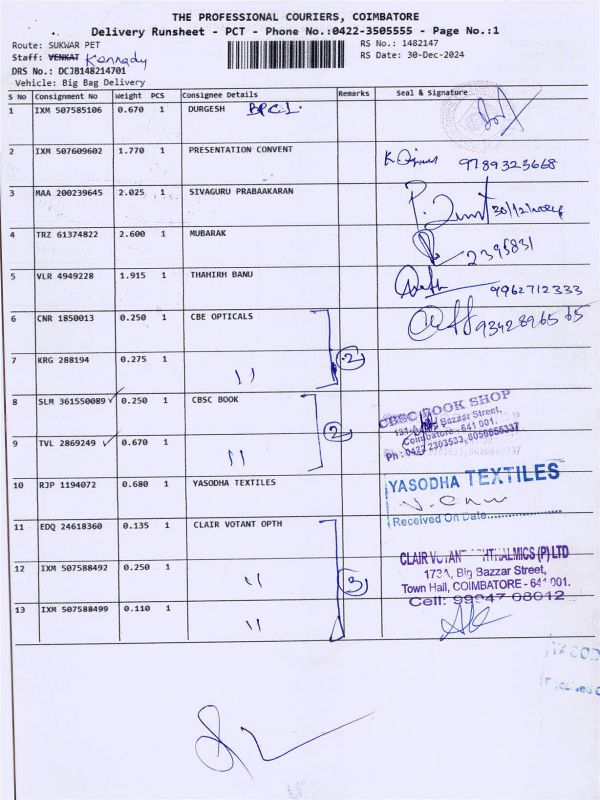 THE PROFESSIONAL COURIERS, COIMBATORE
Delivery Runsheet - PCT - Phone No.:0422-3505555 - Page No.:1
Route: SUKWAR PET RS No.: 1482147
Staff: VENKAT Kennady RS Date: 30-Dec-2024
DRS No.: DCJB148214701
Vehicle: Big Bag Delivery
S No Consignment No Weight PCS Consignee Details Remarks Seal & Signature
1 IXM 507585106 0.670 1 DURGESH BPCL
2 IXM 507609602 1.770 1 PRESENTATION CONVENT 9789323668
3 MAA 200239645 2.025 1 SIVAGURU PRABAAKARAN 30/12/2024
4 TRZ 61374822 2.600 1 MUBARAK 2395831
5 VLR 4949228 1.915 1 THAHIRH BANU 9962712333
6 CNR 1850013 0.250 1 CBE OPTICALS 9342896565
7 KRG 288194 0.275 1 " 2
8 SLM 361550089 0.250 1 CBSC BOOK
9 TVL 2869249 0.670 1 " 2
CBSC BOOK SHOP
Bazaar Street,
Coimbatore - 641 001.
Ph : 0422 2303533, 8056656337
10 RJP 1194072 0.680 1 YASODHA TEXTILES
YASODHA TEXTILES
Received On Date
11 EDQ 24618360 0.135 1 CLAIR VOTANT OPTH
12 IXM 507588492 0.250 1 " 3
13 IXM 507588499 0.110 1 "
CLAIR VOTANT (P) LTD
173A, Big Bazzar Street,
Town Hall, COIMBATORE - 641 001.
Cell: 99947 08012